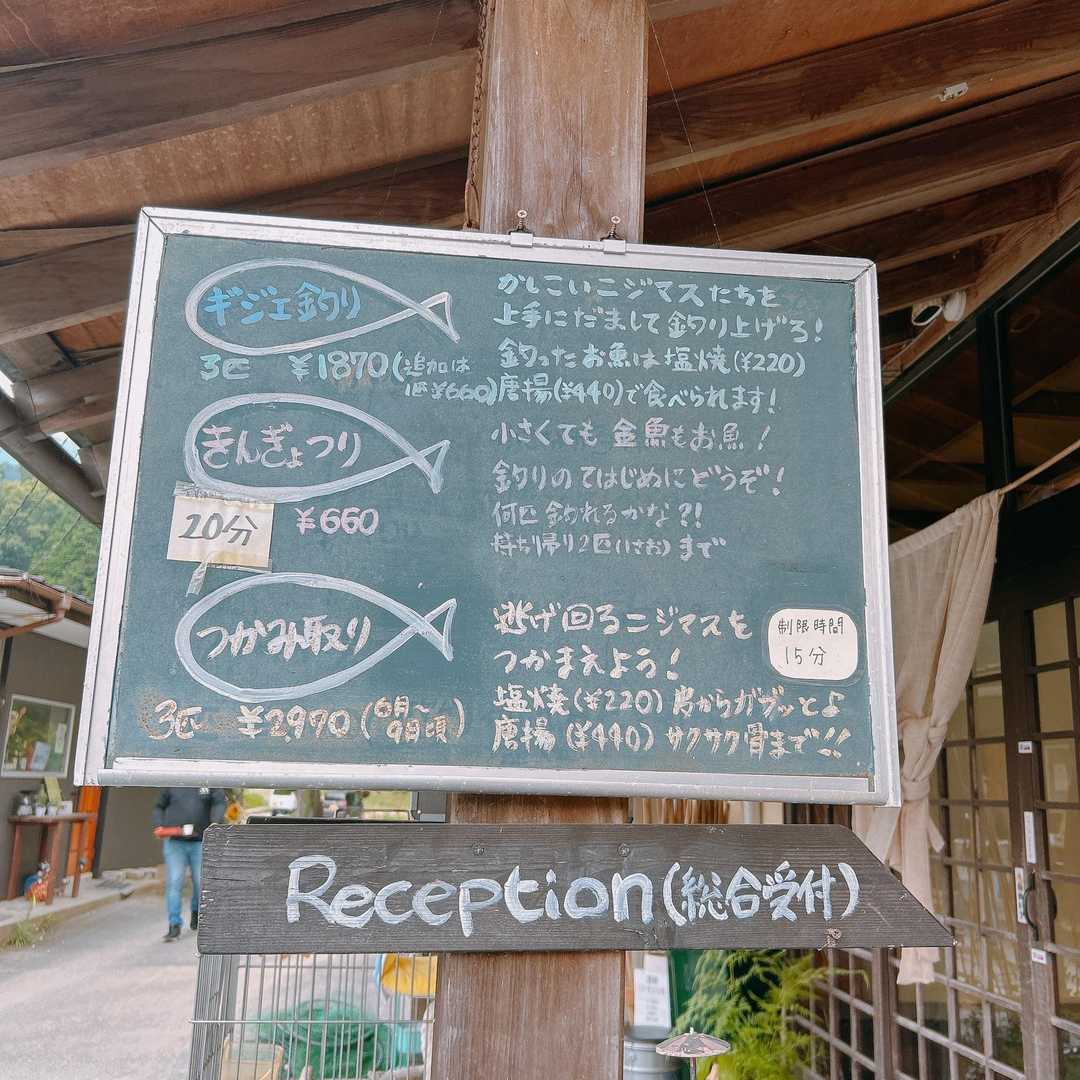 ギジエ釣り
3匹 ¥1870(追加は
1匹¥660)
かしこいニジマスたちを
上手にだまして釣り上げろ!
釣ったお魚は塩焼(¥220)
唐揚(¥440)で食べられます!
きんぎょつり
20分 ¥660
小さくても金魚もお魚!
釣りのてはじめにどうぞ!
何匹釣れるかな?!
持ち帰り2匹(1さお)まで
つかみ取り
3匹 ¥2,970(6月〜
9月頃)
逃げ回るニジマスを
つかまえよう!
塩焼(¥220)炭からガブッとよ
唐揚(¥440)サクサク骨まで!!
制限時間
15分
Reception(総合受付)